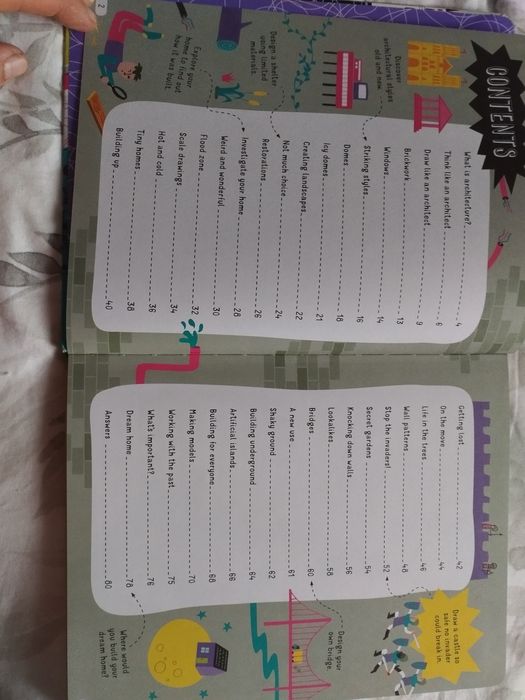 CONTENTS
What is architecture? 4
Think like an architect 6
Draw like an architect 9
Brickwork 13
Windows 14
Striking styles 16
Domes 18
Icy domes 21
Creating landscapes 22
Not much choice 24
Restorations 26
Investigate your home 28
Weird and wonderful 30
Flood zone 32
Scale drawings 34
Hot and cold 36
Tiny homes 38
Building up 40
Discover
architectural styles
old and new.
Design a shelter
using limited
materials.
Explore your
home to find out
how it was built.
2
Getting lost 42
On the move 44
Life in the trees 46
Wall patterns 48
Stop the invaders! 52
Secret gardens 54
Knocking down walls 56
Lookalikes 58
Bridges 60
A new use 61
Shaky ground 62
Building underground 64
Artificial islands 66
Building for everyone 68
Making models 70
Working with the past 75
What's important? 76
Dream home 78
Answers 80
Draw a castle so
safe no invader
could break in.
Design your
own bridge.
Where would
you build your
dream home?